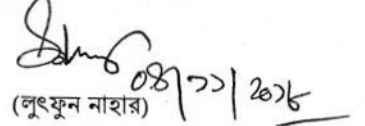 ০৪/১১/২০১৮
(লুৎফুন নাহার)